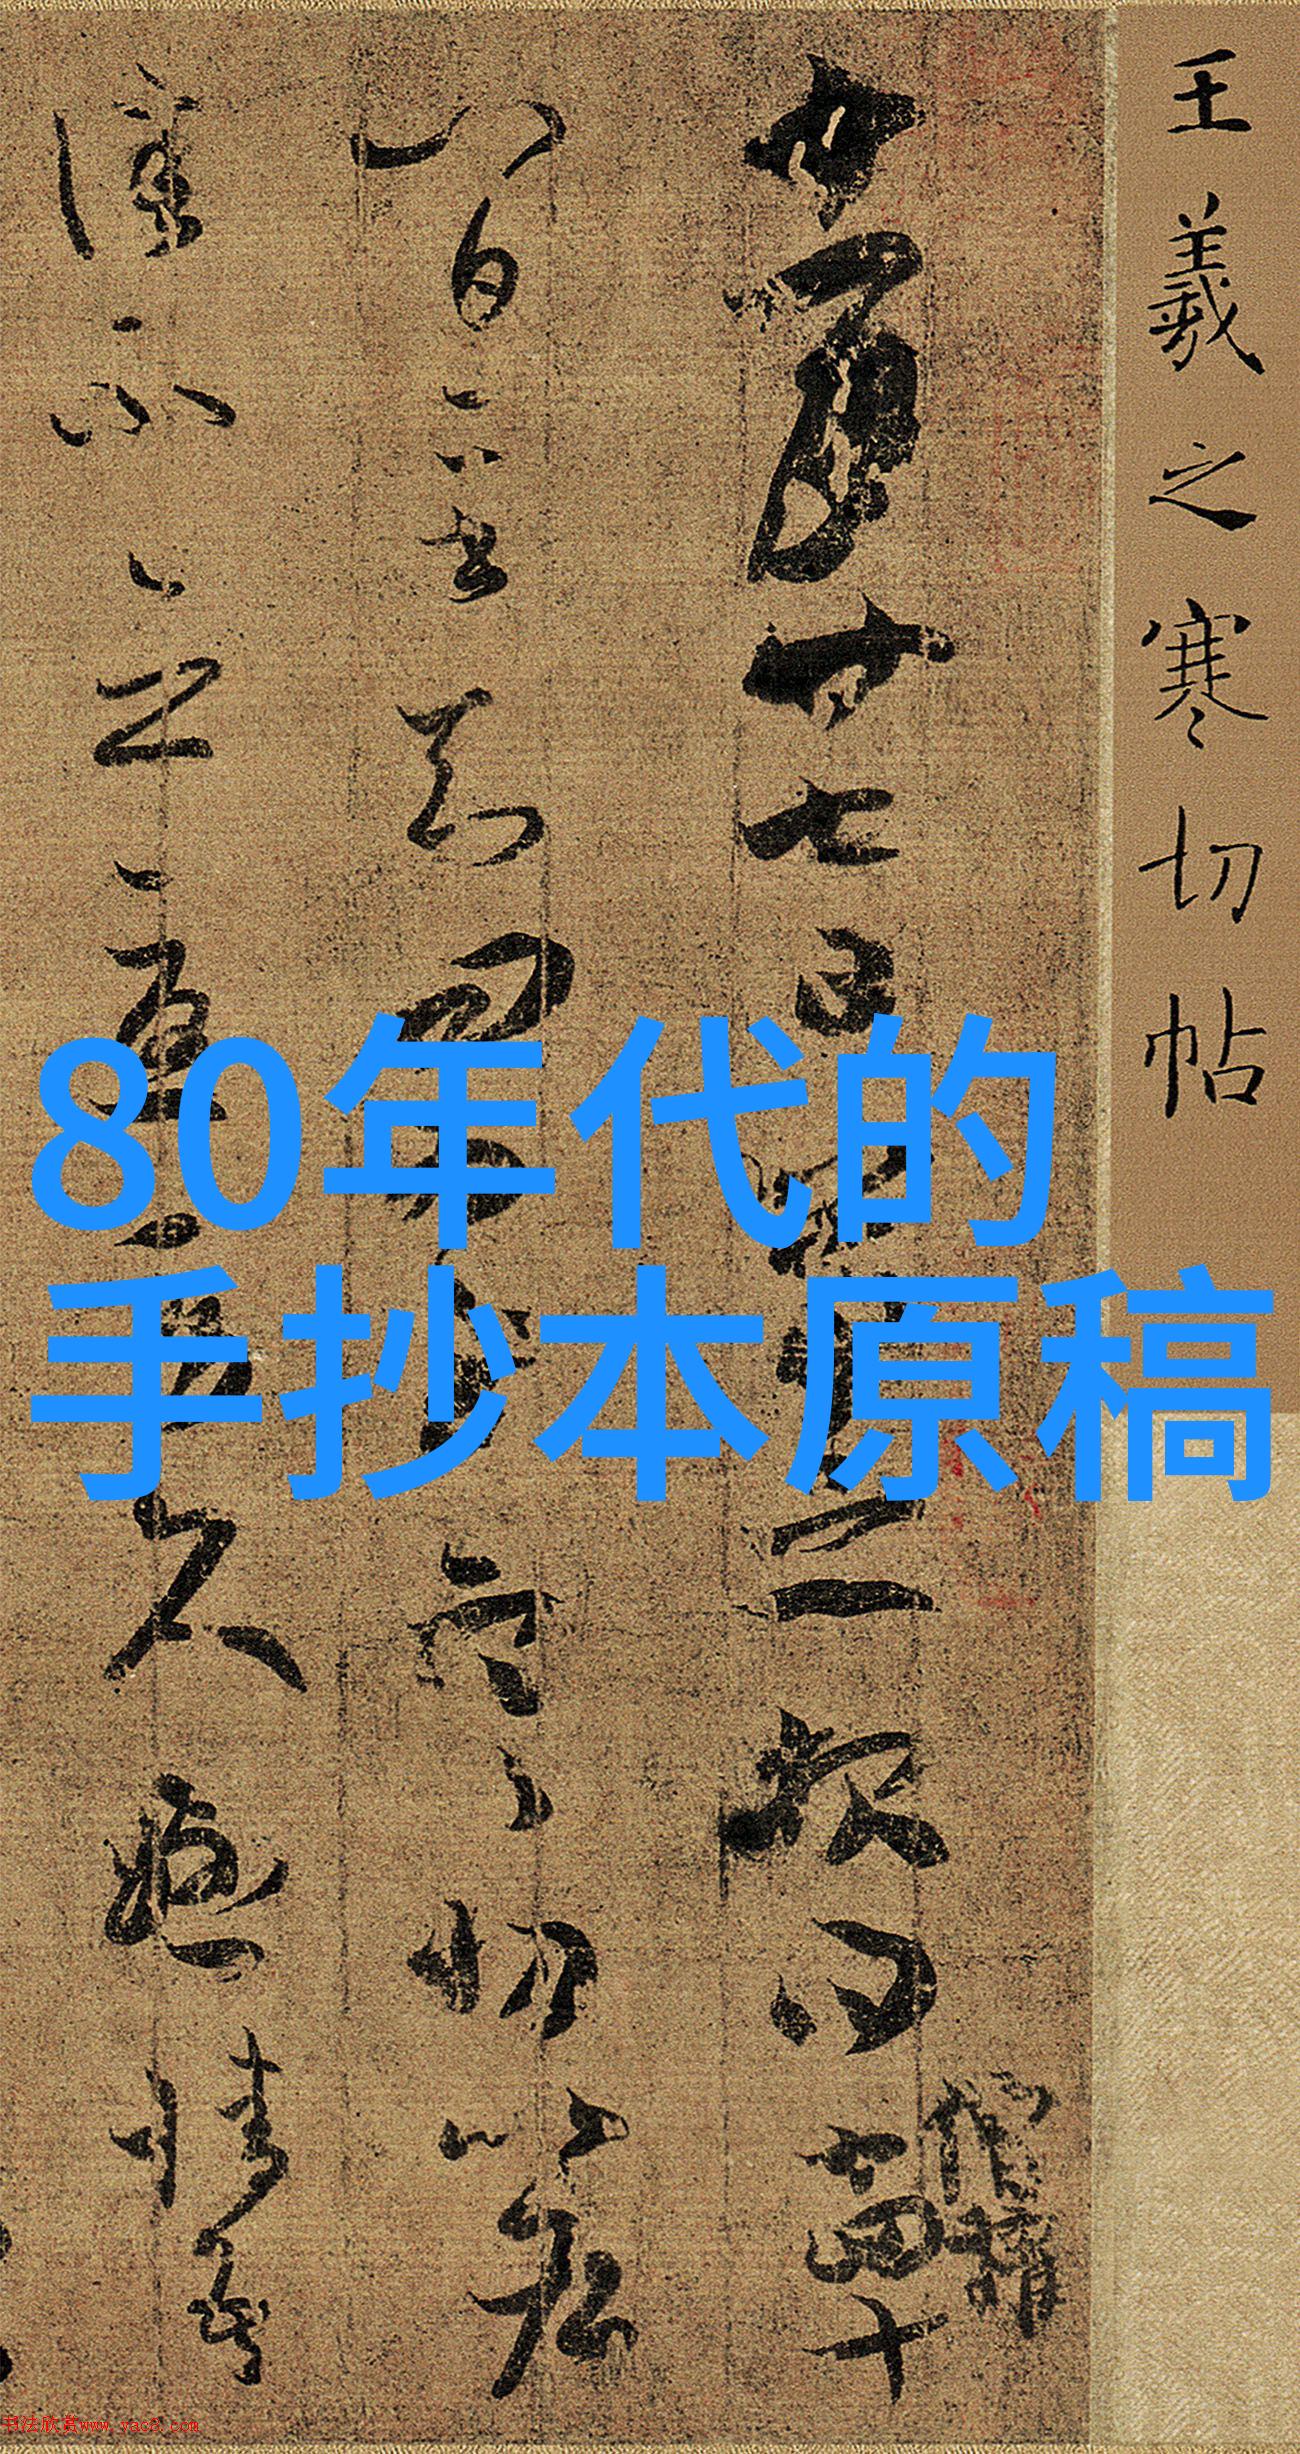 王羲之寒切帖
十一月廿七日羲之報得十四十
八日二書知問為慰寒切比各
佳不念憂勞久懸情吾
僧權
80年代的
手抄本原稿
书法欣赏www.yac8.com